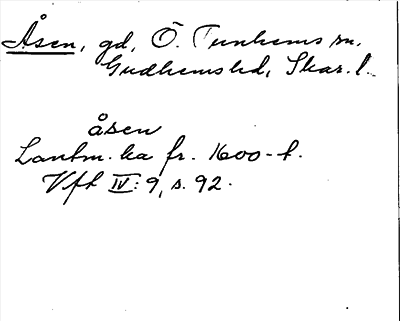 Åsen, gd, Ö. Tunhems sn.
Gudhems hd, Skar. l.
åsen
Lantm. ka fr. 1600-t.
Vft IV: 9, s. 92.